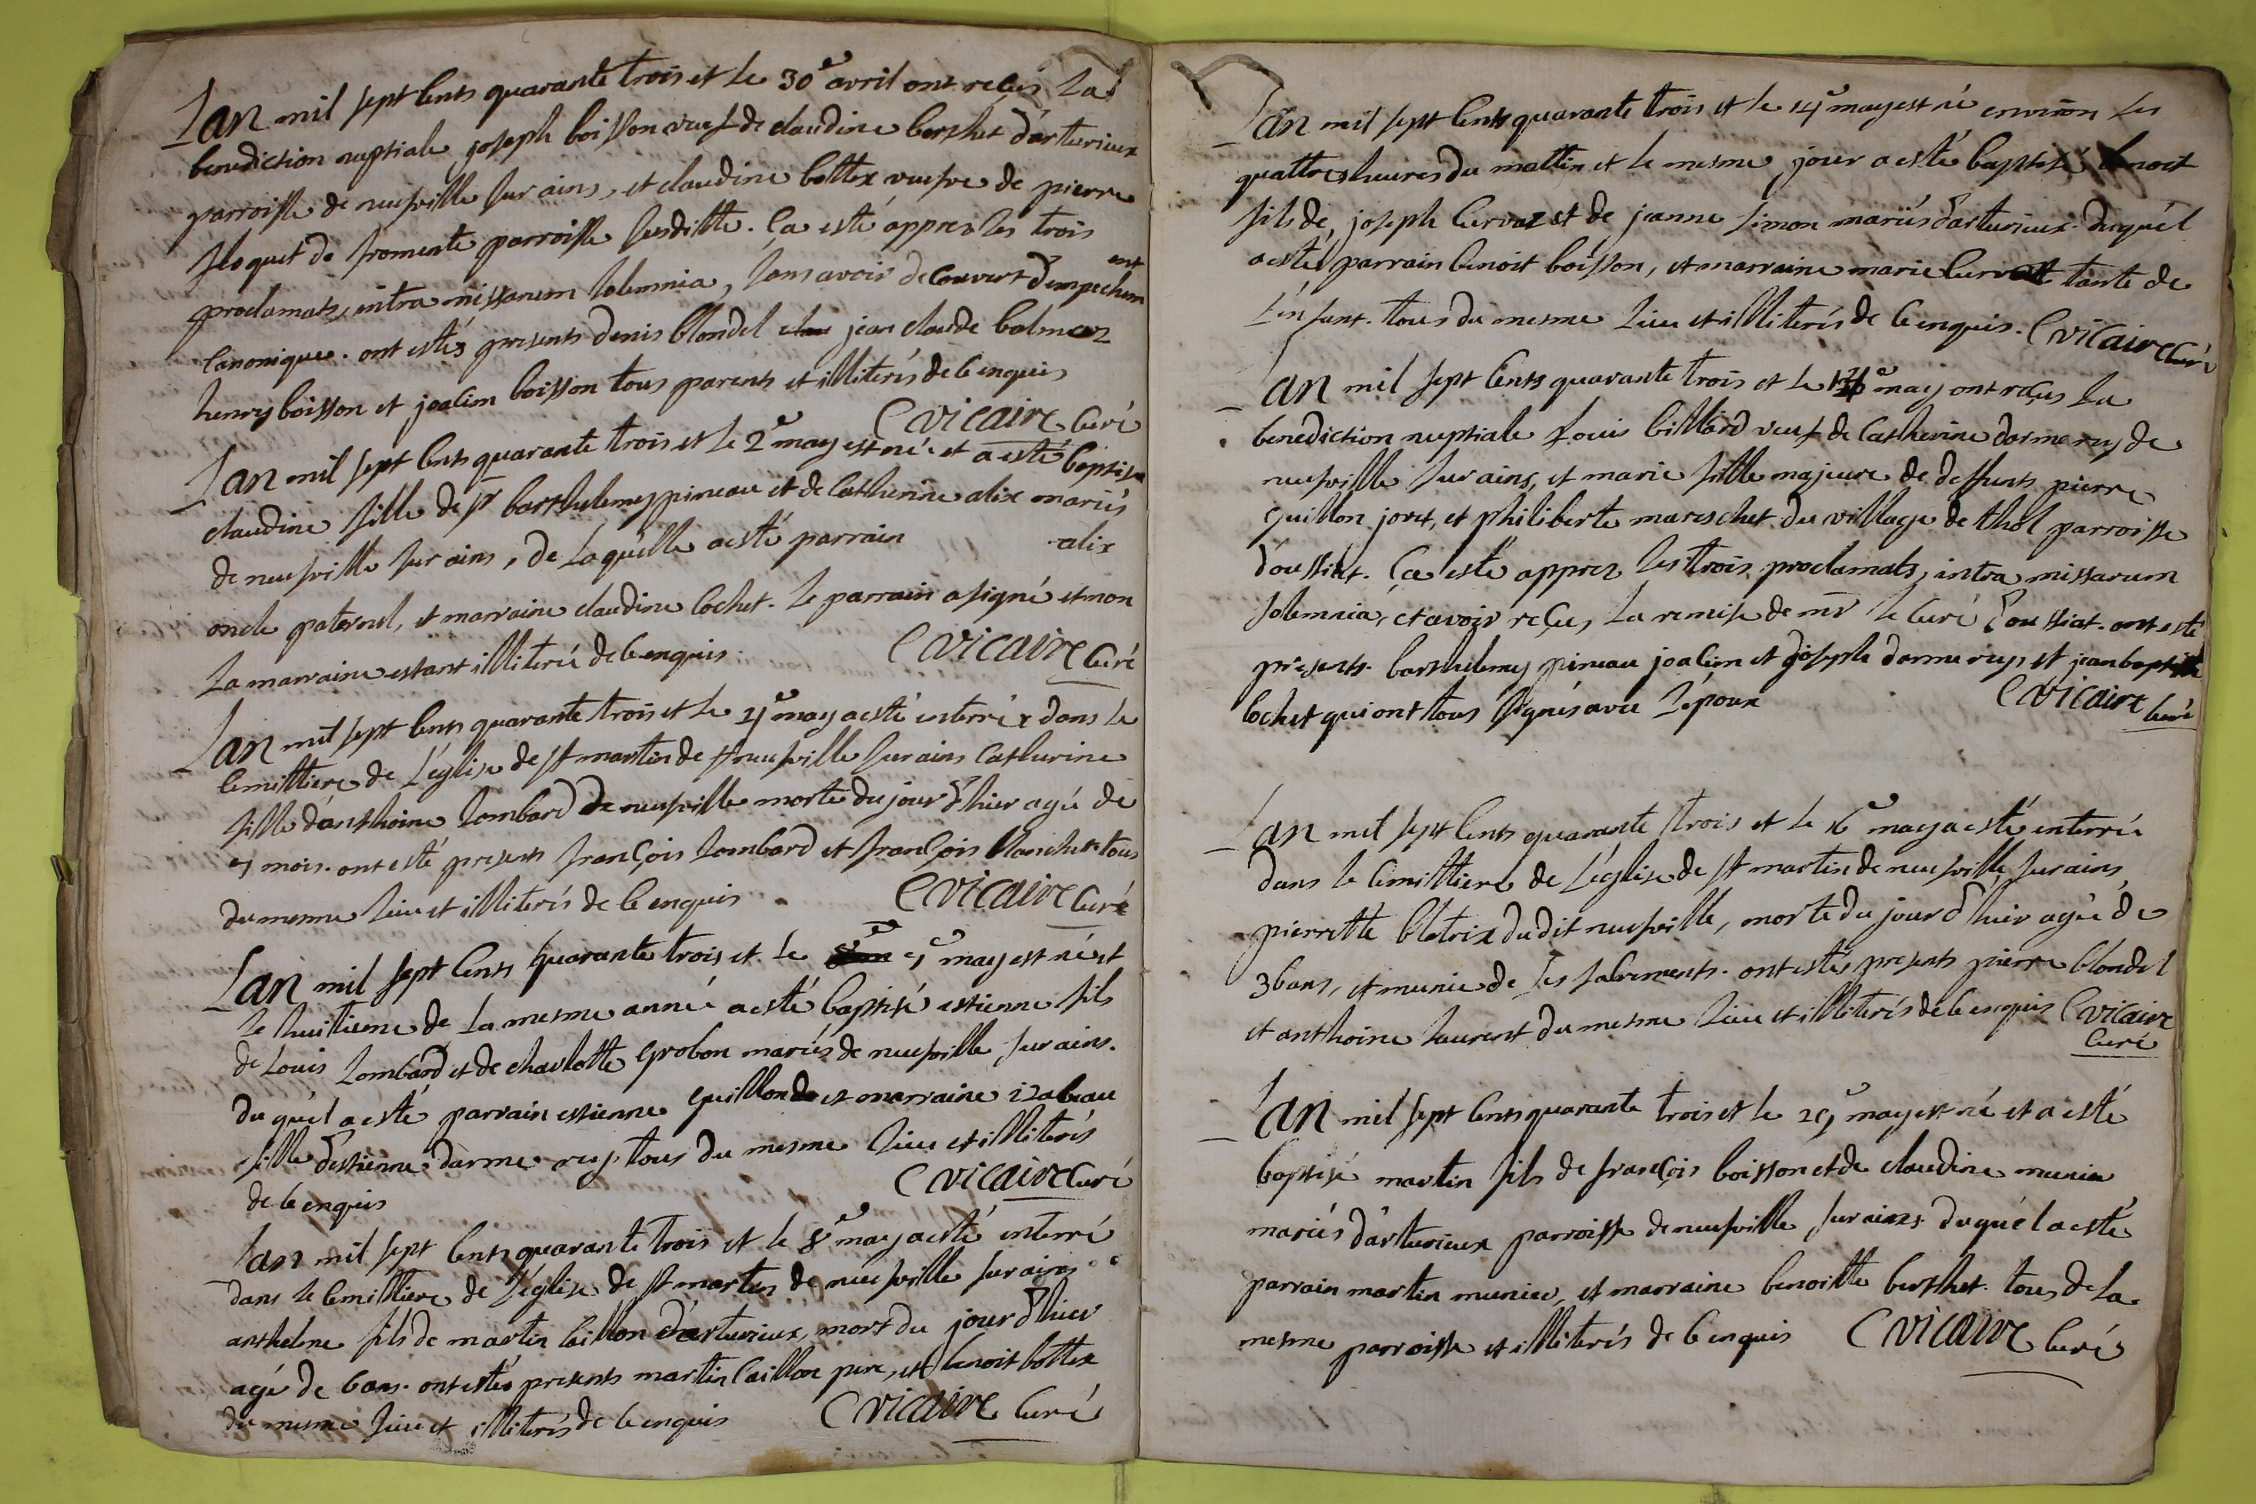 Lan mil sept cents quarante trois et le 30e avril ont reçus la
benediction nuptiale joseph boisson veuf de claudine berthet d'arturieux
parroisse de neufville sur ains, et claudine bottex veufve de pierre
floquet de fromente parroisse susditte. Ça esté apprez les trois
proclamats, intra missarum solemnia, sans avoir decouvert d'empechement
canonique. ont estés presents denis blondel jean claude balmaz
henry boisson et joacim boisson tous parents et illiterés de ce enquis
C vicaire curé
Lan mil sept cents quarante trois et le 2e may est née et a esté baptisée
claudine fille de sr barthelemy pineau et de catherine alix mariés
de neufville sur ains, de laquelle a esté parrain alix
oncle paternel, et marraine claudine cochet. le parrain a signé et non
la marraine estant illiterée de ce enquis.
C vicaire curé
Lan mil sept cents quarante trois et le 4e may a esté enterrée dans le
cemittiere de l'église de st martin de neufville sur ains catherine
fille d'anthoine lombard de neufville morte du jour d'hier agée de
9 mois. ont esté presents françois lombard et françois blanchet tous
du mesme lieu et illiterés de ce enquis
C vicaire curé
Lan mil sept cents quarante trois et le 7e may est né et
le huitieme de la mesme année a esté baptisé estienne fils
de louis lombard et de charlotte grobon mariés de neufville sur ains.
du quel a esté parrain estienne guillon et marraine izabeau
fille d'estienne darmerey tous du mesme lieu et illiterés
de ce enquis
C vicaire curé
Lan mil sept cents quarante trois et le 8e may a esté enterré
dans le cemittiere de l'église de st martin de neufville sur ains
anthelme fils de martin caillon d'arturieux, mort du jour d'hier
agé de 6 ans. ont estés presents martin caillon pere, et benoit bottex
du mesme lieu et illiterés de ce enquis
C vicaire curé
Lan mil sept cents quarante trois et le 14e may est né environ les
quattres heures du mattin et le mesme jour a esté baptisé benoit
fils de joseph cervaz et de jeanne simon mariés d'arturieux. duquel
a esté parrain benoit boisson, et marraine marie tante de
l'enfant. tous du mesme lieu et illiterés de ce enquis. C vicaire curé
Lan mil sept cents quarante trois et le may ont reçus la
benediction nuptiale louis billiard veuf de catherine darmerey de
neufville sur ains, et marie fille majeure de deffunts pierre
guillon joret, et philiberte mareschet du village de thol parroisse
d'oussiat. Ça esté apprez les trois proclamats, intra missarum
solemnia, et avoir reçu, la remise de mr le curé d'oussiat. ont esté
presents barthelemy pineau joacim et joseph darmerey et jean baptiste
cochet qui ont tous signés avec l'époux
C vicaire curé
Lan mil sept cents quarante trois et le 16e may a esté enterrée
dans le cimittiere de l'église de st martin de neufville sur ains
pierrette bletrix dudit neufville, morte du jour d'hier agée de
36 ans, et munie de ses sacrements. ont estés presents pierre blondel
et anthoine laurent du mesme lieu et illiterés de ce enquis C vicaire
curé
Lan mil sept cents quarante trois et le 29e may est né et a esté
baptisé martin fils de françois boisson et de claudine munier
mariés d'arturieux parroisse de neufville sur ains. duquel a esté
parrain martin munier, et marraine benoitte berthet. tous de la
mesme parroisse et illiterés de ce enquis C vicaire curé